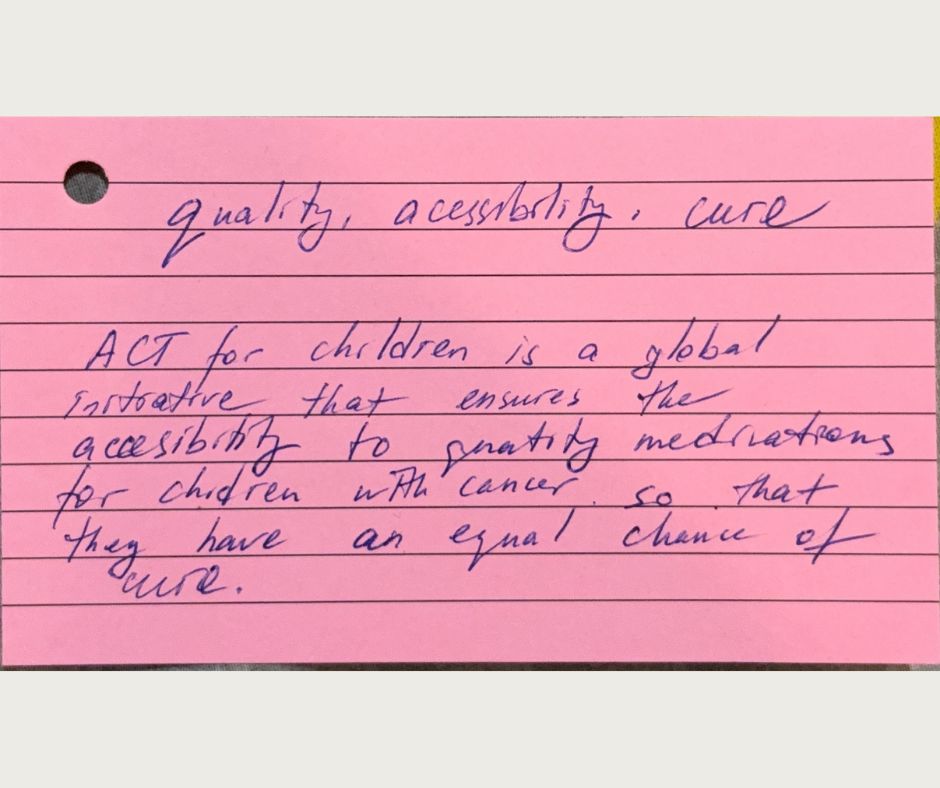 quality, acessibility, cure
ACT for children is a global
initiative that ensures the
accesibility to quality medications
for children with cancer. so that
they have an equal chance of
cure.